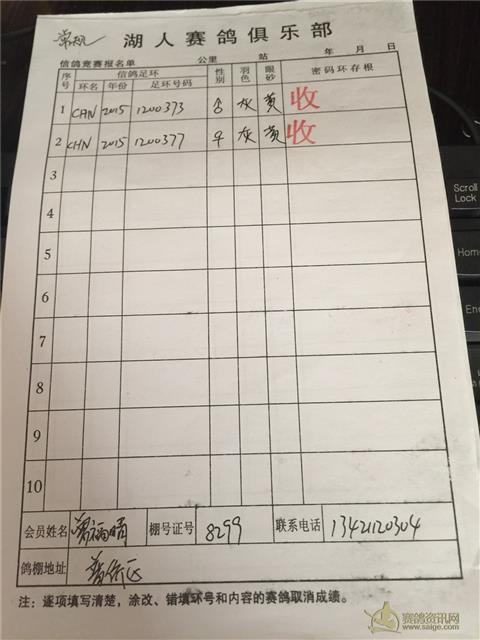 常规 湖人赛鸽俱乐部
信鸽竞赛报名单 公里 站 年 月 日
序号 信鸽足环 性别 羽色 眼砂 密码环存根
环名 年份 足环号码
1 CHN 2015 1200373 ♂ 灰 黄 收
2 CHN 2015 1200377 ♀ 灰 黄 收
3
4
5
6
7
8
9
10
会员姓名 棚号证号 8299 联系电话 13421120304
鸽棚地址
注：逐项填写清楚，涂改、错填环号和内容的赛鸽取消成绩。
Scroll
Lock
Home
End
赛鸽资讯网
www.saige.com